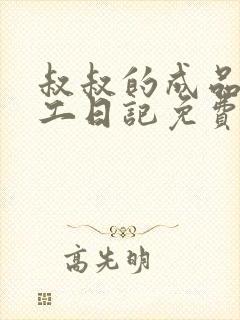 叔叔的成品
工日記免費
高先明